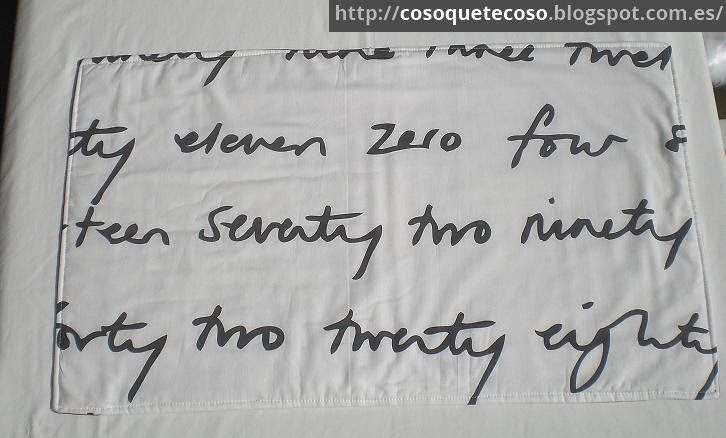 http://cosoquetecoso.blogspot.com.es/
nine three twel
ty eleven zero four s
teen seventy two ninety
orty two twenty eighty